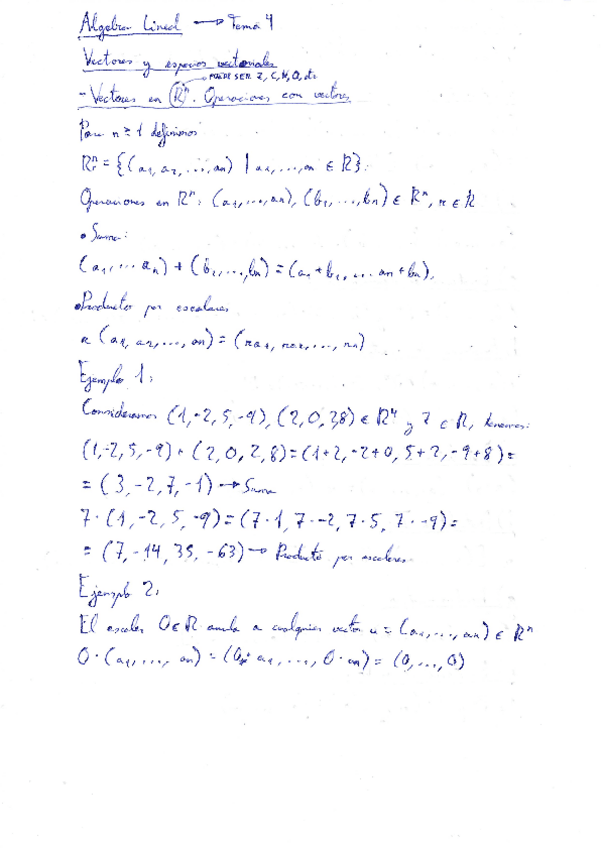 Algebra Lineal → Tema 4
Vectores y espacios vectoriales
PUEDE SER Z, C, N, Q, etc
- Vectores en ℝⁿ. Operaciones con vectores
Para n ≥ 1 definimos
ℝⁿ = {(a₁, a₂, ..., an) | a₁, ..., an ∈ ℝ}.
Operaciones en ℝⁿ: (a₁, ..., an), (b₁, ..., bn) ∈ ℝⁿ, r ∈ ℝ
• Suma:
(a₁, ... an) + (b₁, ..., bn) = (a₁ + b₁, ... an + bn).
• Producto por escalares
r (a₁, a₂, ..., an) = (ra₁, ra₂, ..., rn)
Ejemplo 1:
Consideramos (1, -2, 5, -9), (2, 0, 2, 8) ∈ ℝ⁴ y 7 ∈ ℝ, tenemos:
(1, -2, 5, -9) + (2, 0, 2, 8) = (1+2, -2+0, 5+2, -9+8) =
= (3, -2, 7, -1) → Suma
7 · (1, -2, 5, -9) = (7·1, 7·-2, 7·5, 7·-9) =
= (7, -14, 35, -63) → Producto por escalares
Ejemplo 2:
El escalar 0 ∈ ℝ anula a cualquier vector u = (a₁, ..., an) ∈ ℝⁿ
0 · (a₁, ..., an) = (0 · a₁, ..., 0 · an) = (0, ..., 0)